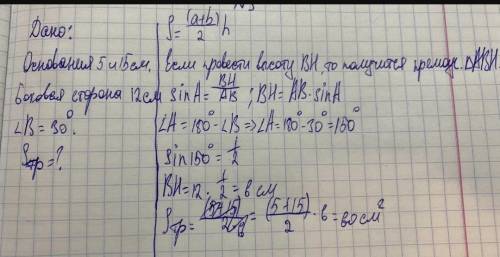 Дано:
Основания 5 и 15 см.
Боковая сторона 12 см
∠B = 30°.
Sтр = ?
S = (a+b)/2 h
Если провести высоту BH, то получится прямоуг. ΔABH.
sin A = BH/AB ; BH = AB · sin A
∠A = 180° - ∠B => ∠A = 180° - 30° = 150°
sin 150° = 1/2
BH = 12 · 1/2 = 6 см
Sтр = (5+15)/2 = (5+15)/2 · 6 = 60 см²